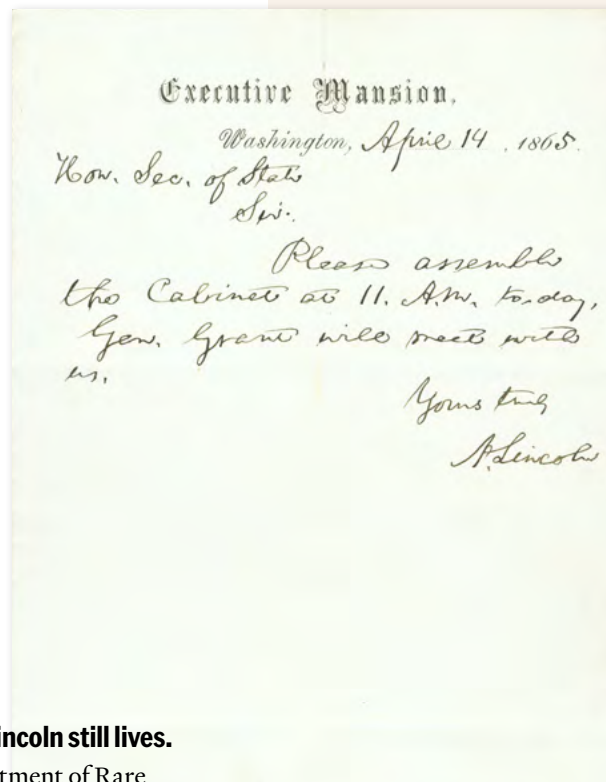 Executive Mansion,
Washington, April 14, 1865.
Hon. Sec. of State
Sir.
Please assemble
the Cabinet at 11. A.M. to-day,
Gen. Grant will meet with
us.
Yours truly
A. Lincoln
incoln still lives.
tment of Rare